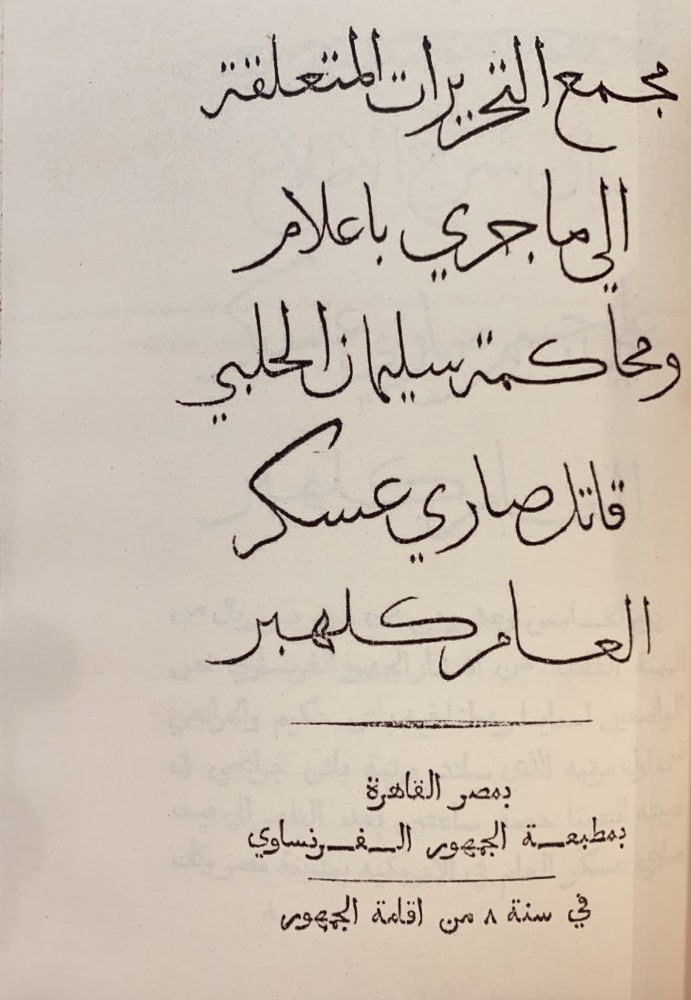 مجمع التحريرات المتعلقة
الي ما جري باعلام
ومحاكمة سليمان الحلبي
قاتل صاري عسكر
العام كلهبر
بمصر القاهرة
بمطبعة الجمهور الفرنساوي
في سنة ٨ من اقامة الجمهور